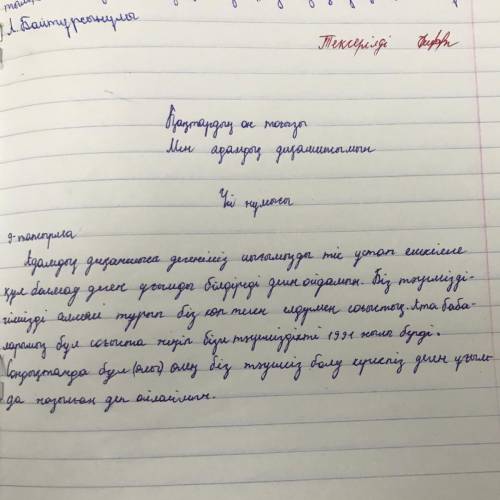 А.Байтұрсынұлы
Тексерілді
Қаңтардың он тоғызы
Мен адалдық диқаншысымын
Үй жұмысы
9-тапсырма
Адалдық диқаншысы дегеніміз тіс
құл болмау деген ұғымды білдіреді деп ойлаймын. Біз тәуелсізді-
гімізді алмай тұрып біз көптеген елдермен соғыстық. Ата баба-
ларымыз бұл соғыста жеңіп бізге тәуелсіздікті 1991 жылы берді.
Сондықтанда бұл (өлең) өлең біз тәуелсіз болу керекпіз деген ұғым-
да жазылған деп ойлаймын.